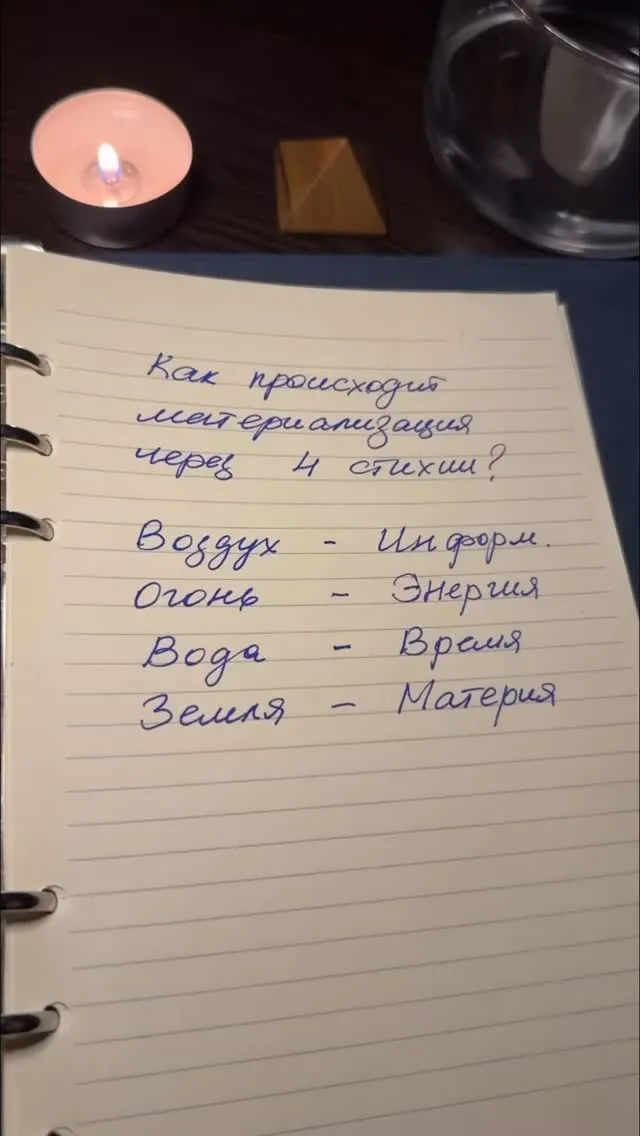 Как происходит
материализация
через 4 стихии?
Воздух - Информ.
Огонь - Энергия
Вода - Время
Земля - Материя